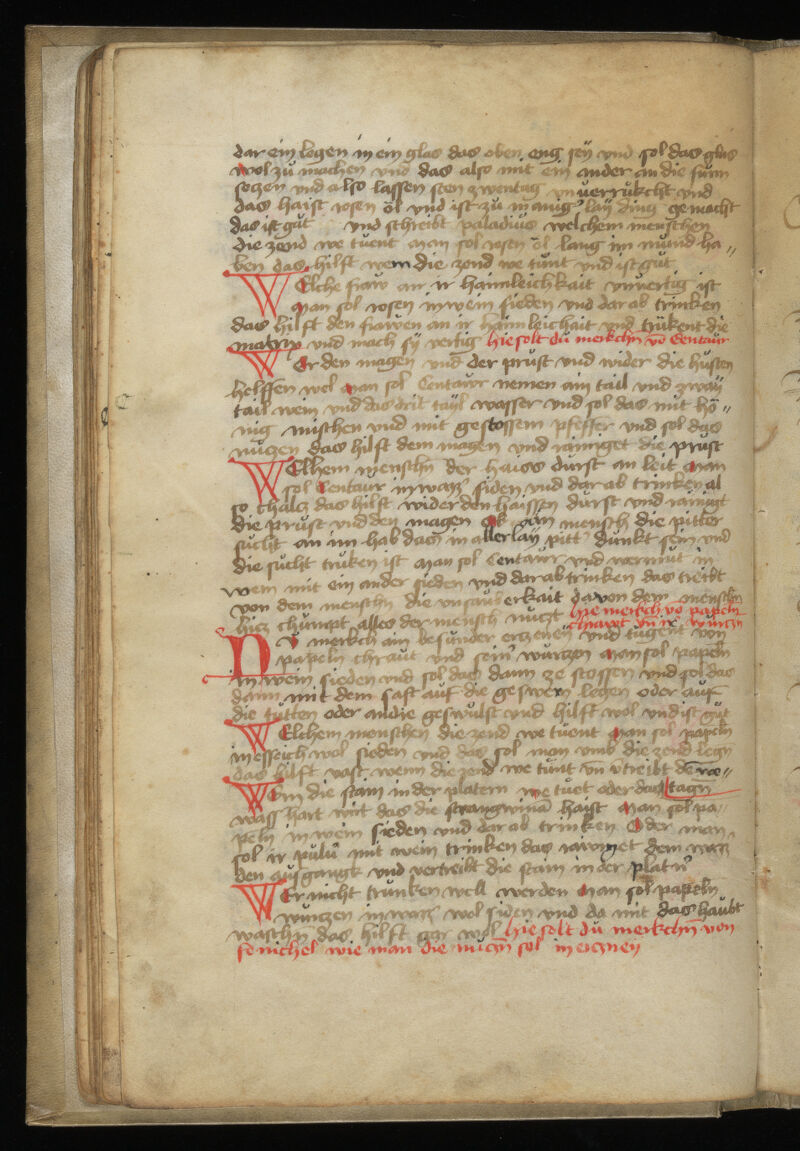 dar ein legen in ein glas das oben eng sey vnd sol das glas
wol zu machen vnd das also mit ein ander an die sunn
seczen vnd also lassen sten zwen tag vnuerrukcht vnd
das haist rosen öl vnd ist zu maniger lay ding gemacht
das ist gut vnd schreibt paladius welchem menschen
die zend we tuent man sol rosen öl lang im mund ha„
ben das hilft wem die zend we tunt vnd ist gut
Welche fraw an ir hamleichkait vnuertig ist
Man sol rosen in wein sieden vnd dar ab trinken
das hilft den frawen an ir hamleichait vnd trükent die
matrix vnd mach sy vertig hie solt du merkchn vo Centaur
Wer den magen vnd der prust vnd wider die husten
helffen wel man sol Centawr nemen ain tail vnd zway
tail wein vnd das drit tayl wasser vnd sol das mit hö„
nig mischen vnd mit gestossem pfeffer vnd sol das
nuczen das hilft dem magen vnd rainiget die prust
Welhem menschn der haiss durst an leit man
sol Centaur in waz̄ siden vnd dar ab trinken al
so chalcz das hilft wider den haissen durst vnd rainigt
die prust vnd den magen Ob ain mensch die pitter
sucht an im hab das im aller lay pitt' dunkt sein vnd
die sucht truken ist man sol Centawr vnd wermut in
wein mit ein ander sieden vnd dar ab trinken das treibt
von dem menschn die vnsauberkait da von dem menschn
hicz chumpt alles der mensch nuczt hie merkch vo papeln
chrawt vn ir wurczn
Nv merkch ain besunder erczeney vnd tugent von
papeln chraut vnd seiner wurczen man sol papeln
in wein sieden vnd sol das dann ze stossen vnd sol das
dann mit dem saft auf die geswern legen oder auf
die tutten oder an die geswulst vnd hilft wol vnd ist gut
Welchem menschen die zend we tuent man sol papeln
in esseich wol sieden vnd das sol man vmb die zend legn
das hilft vast wenn die zend we tunt vn vtreibt de we„
tagn
Wem die stain in der platern we tuet oder das
wass hart wirt das die strangwina haist Man sol pa„
peln in wein sieden vnd dar ab trinken Oder man
sol ir puluer mit wein trinken das raymet dem waz
den ausgangk vnd vertreibt die stain in der platn
Wer nicht trunken well werden man sol papeln
wurczen in waz̄ wol siden vnd da mit das haubt
waschn das hilft gar wol hie solt du merkchn von
fenichel wie man die nuczn sol in erczney